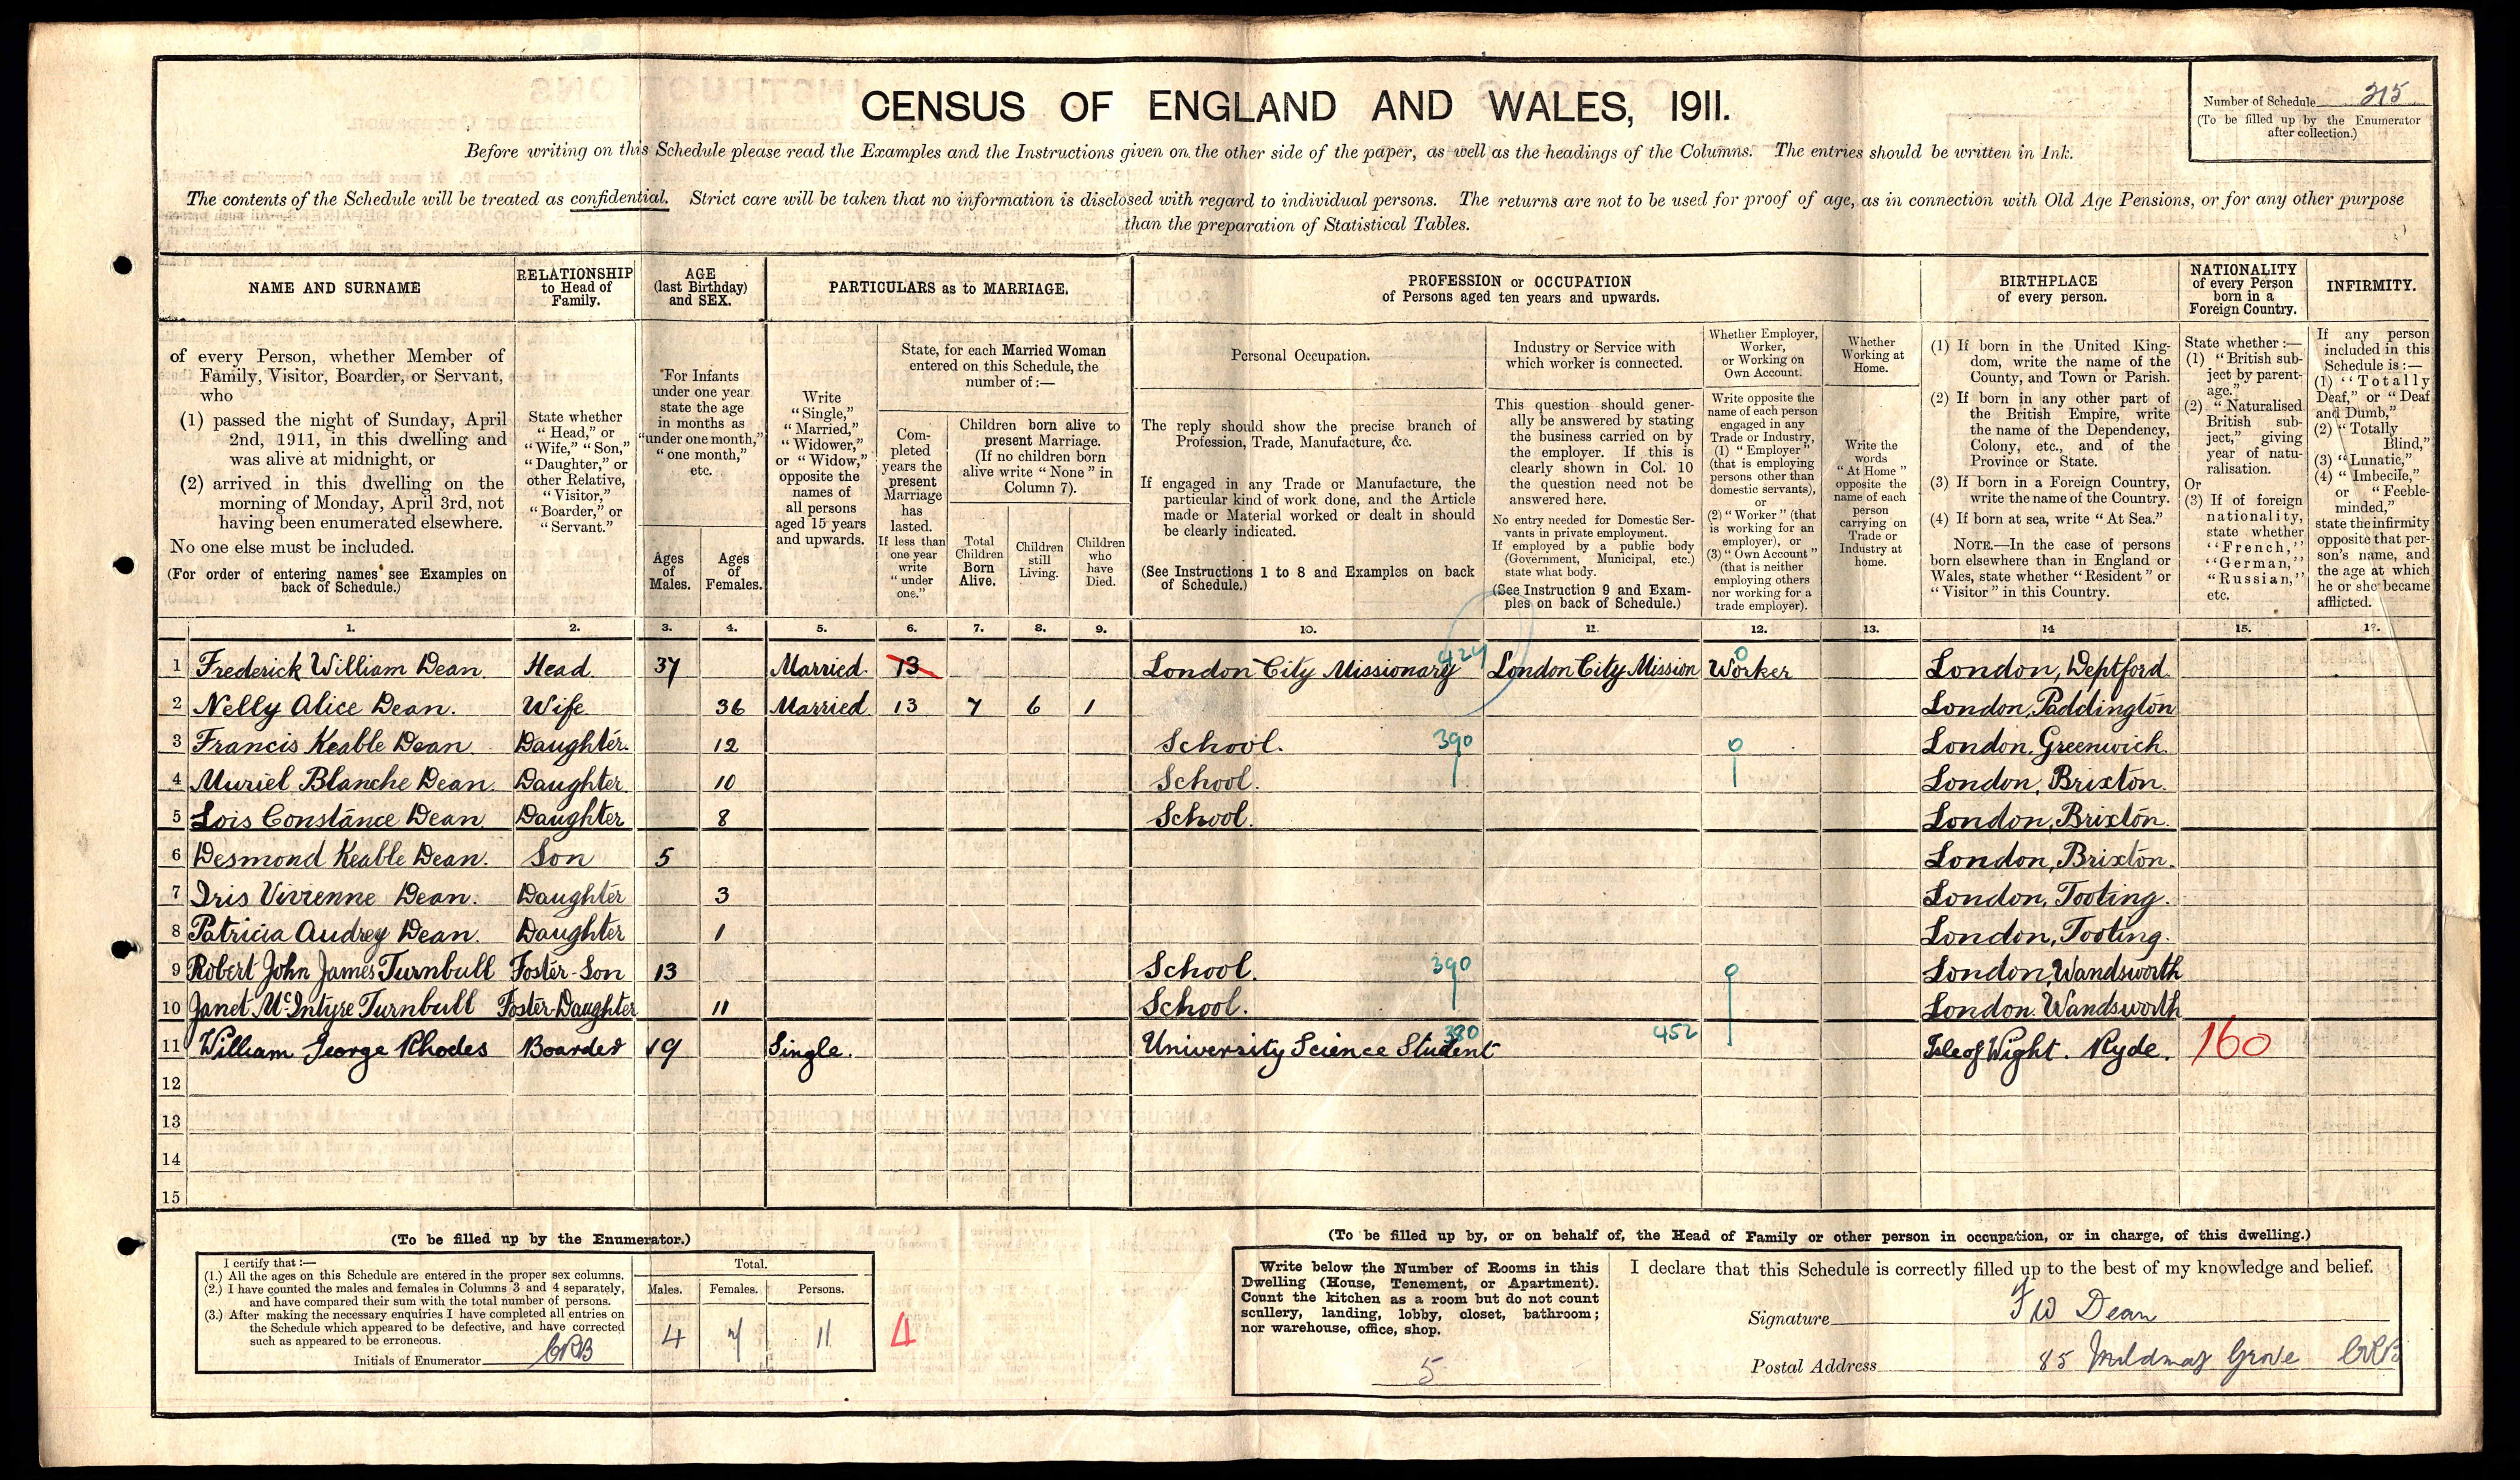 CENSUS OF ENGLAND AND WALES, 1911.
Number of Schedule 215
(To be filled up by the Enumerator
after collection.)
Before writing on this Schedule please read the Examples and the Instructions given on the other side of the paper, as well as the headings of the Columns. The entries should be written in Ink.
The contents of the Schedule will be treated as confidential. Strict care will be taken that no information is disclosed with regard to individual persons. The returns are not to be used for proof of age, as in connection with Old Age Pensions, or for any other purpose
than the preparation of Statistical Tables.
NAME AND SURNAME
of every Person, whether Member of
Family, Visitor, Boarder, or Servant,
who
(1) passed the night of Sunday, April
2nd, 1911, in this dwelling and
was alive at midnight, or
(2) arrived in this dwelling on the
morning of Monday, April 3rd, not
having been enumerated elsewhere.
No one else must be included.
(For order of entering names see Examples on
back of Schedule.)
RELATIONSHIP
to Head of
Family.
State whether
"Head," or
"Wife," "Son,"
"Daughter," or
other Relative,
"Visitor,"
"Boarder," or
"Servant."
AGE
(last Birthday)
and SEX.
For Infants
under one year
state the age
in months as
"under one month,"
"one month,"
etc.
Ages
of
Males.
Ages
of
Females.
PARTICULARS as to MARRIAGE.
Write
"Single,"
"Married,"
"Widower,"
or "Widow,"
opposite the
names of
all persons
aged 15 years
and upwards.
State, for each Married Woman
entered on this Schedule, the
number of:—
Com-
pleted
years the
present
Marriage
has
lasted.
If less than
one year
write
"under
one."
Children born alive to
present Marriage.
(If no children born
alive write "None" in
Column 7).
Total
Children
Born
Alive.
Children
still
Living.
Children
who
have
Died.
PROFESSION or OCCUPATION
of Persons aged ten years and upwards.
Personal Occupation.
The reply should show the precise branch of
Profession, Trade, Manufacture, &c.
If engaged in any Trade or Manufacture, the
particular kind of work done, and the Article
made or Material worked or dealt in should
be clearly indicated.
(See Instructions 1 to 8 and Examples on back
of Schedule.)
Industry or Service with
which worker is connected.
This question should gener-
ally be answered by stating
the business carried on by
the employer. If this is
clearly shown in Col. 10
the question need not be
answered here.
No entry needed for Domestic Ser-
vants in private employment.
If employed by a public body
(Government, Municipal, etc.)
state what body.
(See Instruction 9 and Exam-
ples on back of Schedule.)
Whether Employer,
Worker,
or Working on
Own Account.
Write opposite the
name of each person
engaged in any
Trade or Industry,
(1) "Employer"
(that is employing
persons other than
domestic servants),
or
(2) "Worker" (that
is working for an
employer), or
(3) "Own Account"
(that is neither
employing others
nor working for a
trade employer).
Whether
Working at
Home.
Write the
words
"At Home"
opposite the
name of each
person
carrying on
Trade or
Industry at
home.
BIRTHPLACE
of every person.
(1) If born in the United King-
dom, write the name of the
County, and Town or Parish.
(2) If born in any other part of
the British Empire, write
the name of the Dependency,
Colony, etc., and of the
Province or State.
(3) If born in a Foreign Country,
write the name of the Country.
(4) If born at sea, write "At Sea."
NOTE.—In the case of persons
born elsewhere than in England or
Wales, state whether "Resident" or
"Visitor" in this Country.
NATIONALITY
of every Person
born in a
Foreign Country.
State whether:—
(1) "British sub-
ject by parent-
age."
(2) "Naturalised
British sub-
ject," giving
year of natu-
ralisation.
Or
(3) If of foreign
nationality,
state whether
"French,"
"German,"
"Russian,"
etc.
INFIRMITY.
If any person
included in this
Schedule is:—
(1) "Totally
Deaf," or "Deaf
and Dumb,"
(2) "Totally
Blind,"
(3) "Lunatic,"
(4) "Imbecile,"
or "Feeble-
minded,"
state the infirmity
opposite that per-
son's name, and
the age at which
he or she became
afflicted.
1. 2. 3. 4. 5. 6. 7. 8. 9. 10. 11. 12. 13. 14 15. 16.
1 Frederick William Dean Head. 37 Married. 13 London City Missionary 424 London City Mission Worker 0 London, Deptford.
2 Nelly Alice Dean. Wife 36 Married 13 7 6 1 London, Paddington
3 Francis Keable Dean Daughter. 12 School. 390 0 London, Greenwich.
4 Muriel Blanche Dean. Daughter. 10 School. London, Brixton.
5 Lois Constance Dean. Daughter 8 School. London, Brixton.
6 Desmond Keable Dean. Son 5 London, Brixton.
7 Iris Vivienne Dean. Daughter 3 London, Tooting.
8 Patricia Audrey Dean. Daughter 1 London, Tooting.
9 Robert John James Turnbull Foster-Son 13 School. 390 0 London, Wandsworth
10 Janet McIntyre Turnbull Foster-Daughter 11 School. London. Wandsworth
11 William George Rhodes Boarder 19 Single. University Science Student 380 452 Isle of Wight. Ryde. 160
12
13
14
15
(To be filled up by the Enumerator.)
I certify that:—
(1.) All the ages on this Schedule are entered in the proper sex columns.
(2.) I have counted the males and females in Columns 3 and 4 separately,
and have compared their sum with the total number of persons.
(3.) After making the necessary enquiries I have completed all entries on
the Schedule which appeared to be defective, and have corrected
such as appeared to be erroneous.
Initials of Enumerator
Total.
Males. Females. Persons.
4 7 11
4
(To be filled up by, or on behalf of, the Head of Family or other person in occupation, or in charge, of this dwelling.)
Write below the Number of Rooms in this
Dwelling (House, Tenement, or Apartment).
Count the kitchen as a room but do not count
scullery, landing, lobby, closet, bathroom;
nor warehouse, office, shop.
5
I declare that this Schedule is correctly filled up to the best of my knowledge and belief.
Signature F W Dean
Postal Address 85 Mildmay Grove